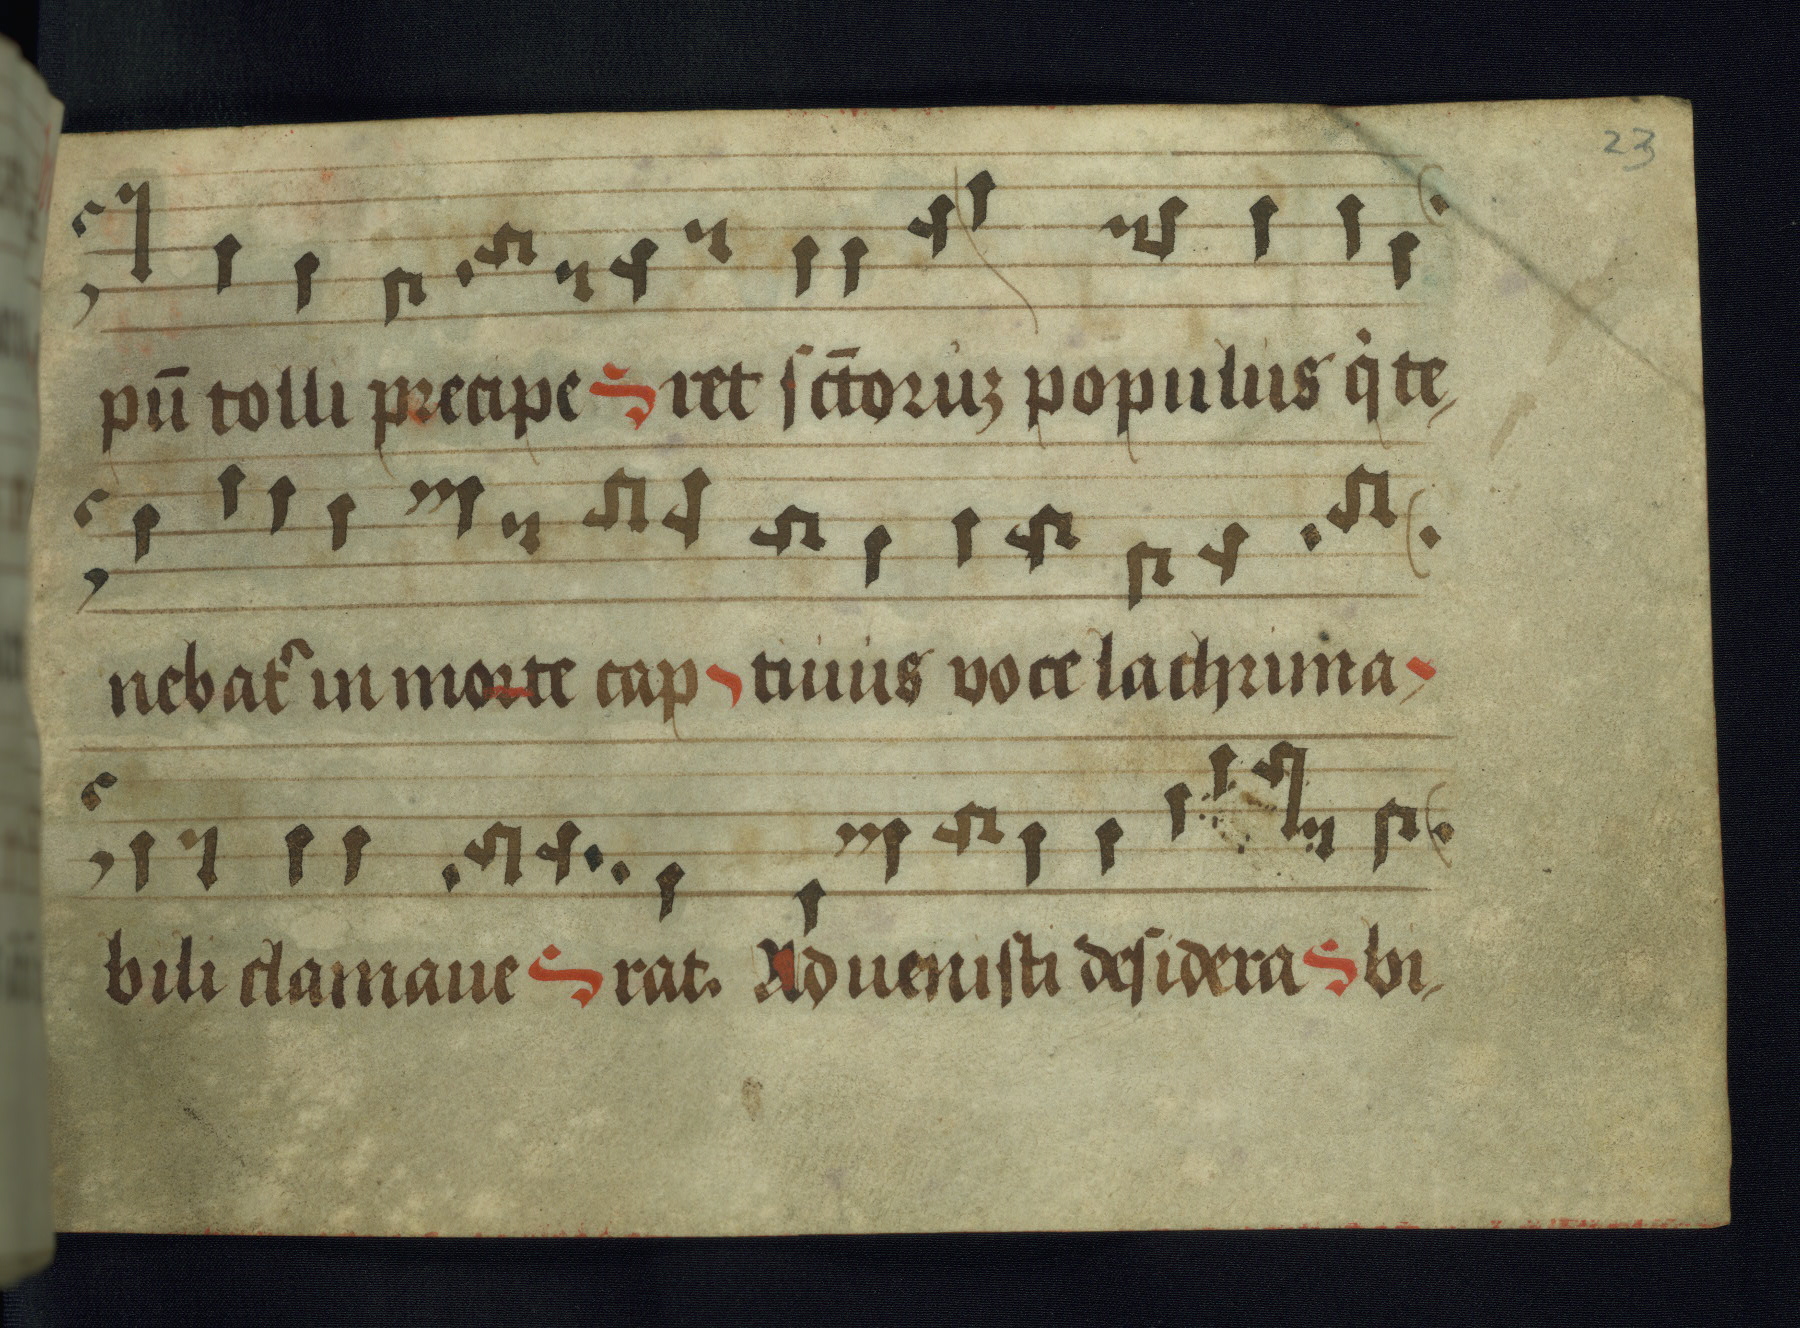 23
pū tolli precipe ret sc̄toruꝫ populus q̇ te
nebat᷑ in morte cap tiuus voce lachrima
bili clamaue rat. Aduenisti desidera bi